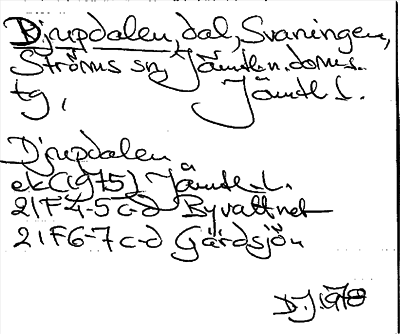 Djupdalen, dal, Svaningen,
Ströms sn Jämtl. n. doms.
tg, Jämtl L.
Djupdalen
ek(1975) Jämtl. L.
21F4-5c-d Byvattnet
21F6-7c-d Gärdsjön
D.J. 1978